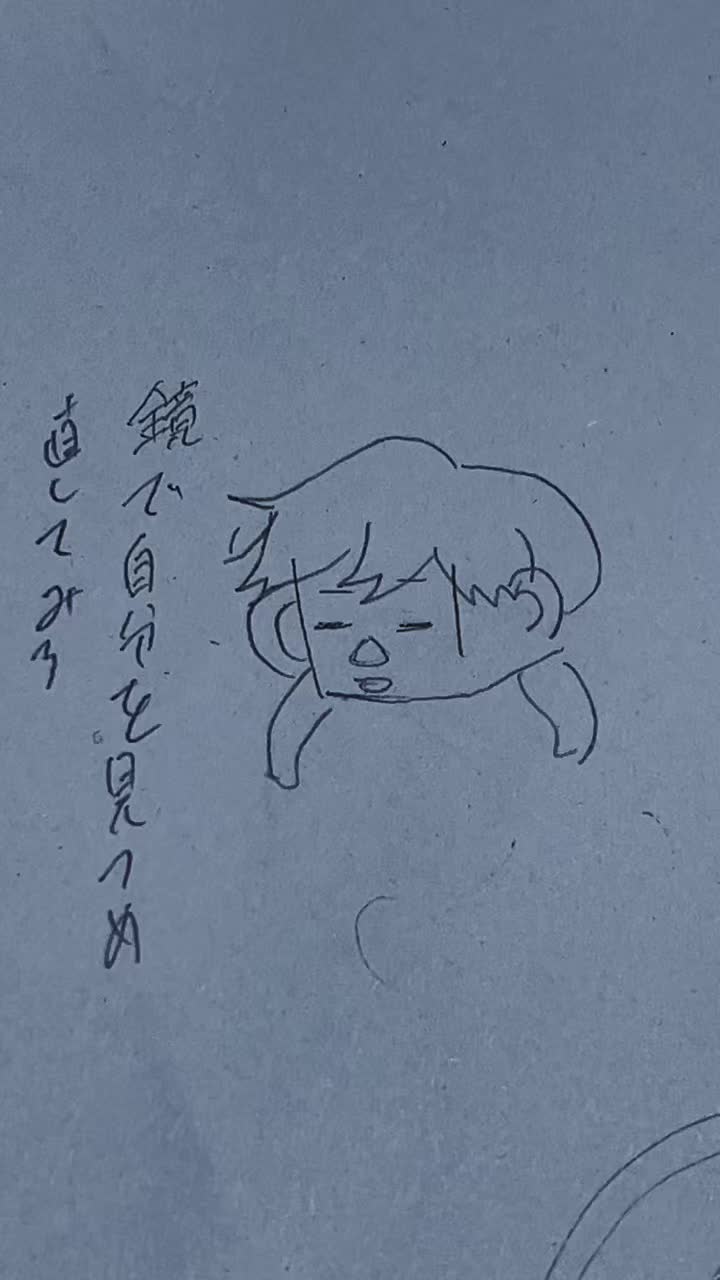 鏡で自分を見つめ
直してみろ